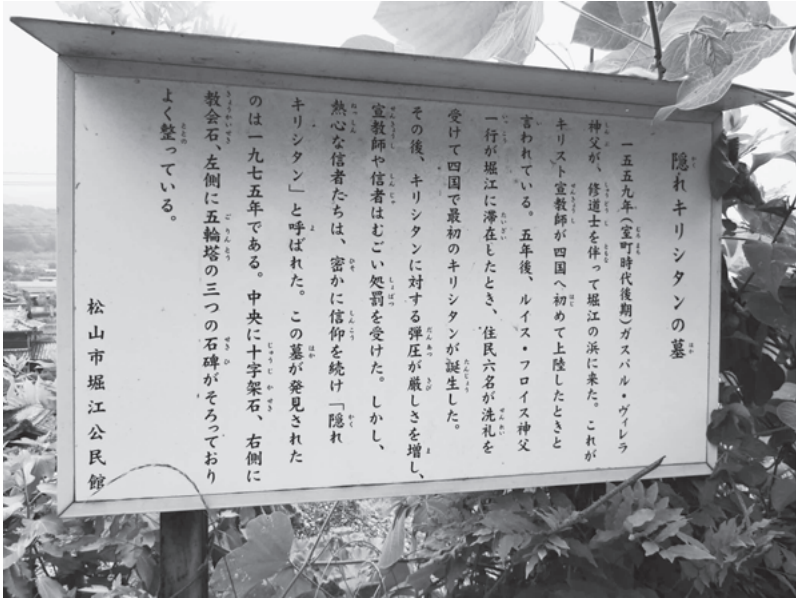 隠れキリシタンの墓
一五五九年（室町時代後期）ガスパル・ヴィレラ
神父が、修道士を伴って堀江の浜に来た。これが
キリスト宣教師が四国へ初めて上陸したときと
言われている。五年後、ルイス・フロイス神父
一行が堀江に滞在したとき、住民六名が洗礼を
受けて四国で最初のキリシタンが誕生した。
その後、キリシタンに対する弾圧が厳しさを増し、
宣教師や信者はむごい処罰を受けた。しかし、
熱心な信者たちは、密かに信仰を続け「隠れ
キリシタン」と呼ばれた。この墓が発見された
のは一九七五年である。中央に十字架石、右側に
教会石、左側に五輪塔の三つの石碑がそろっており
よく整っている。
松山市堀江公民館